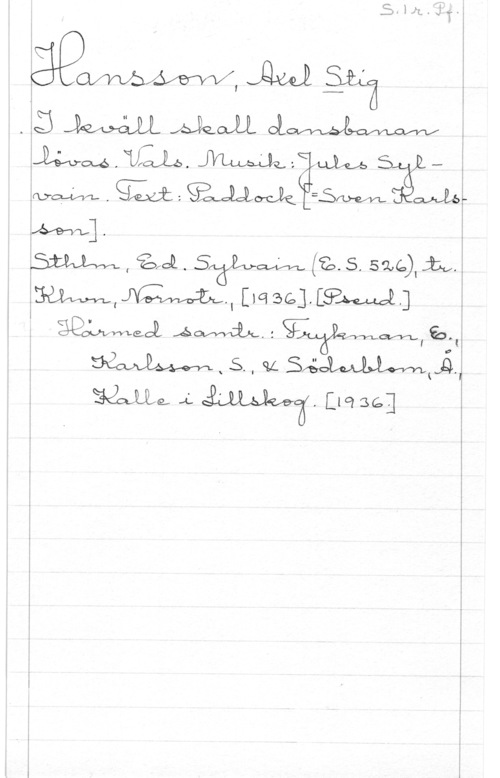 S. 1 r. Pf.
Hansson, Axel Stig
I kväll skall dansbanan
lövas. Vals. Musik: Jules Syl-
vain. Text: Paddock [=Sven Karls-
son].
Sthlm, Ed. Sylvain (E. S. 526), tr.
Khvn, Nornotr., [1936]. [Pseud.]
Härmed samtr.: Frykman, E.,
Karlsson, S., & Söderblom, Å.,
Kalle i Lillskog. [1936]